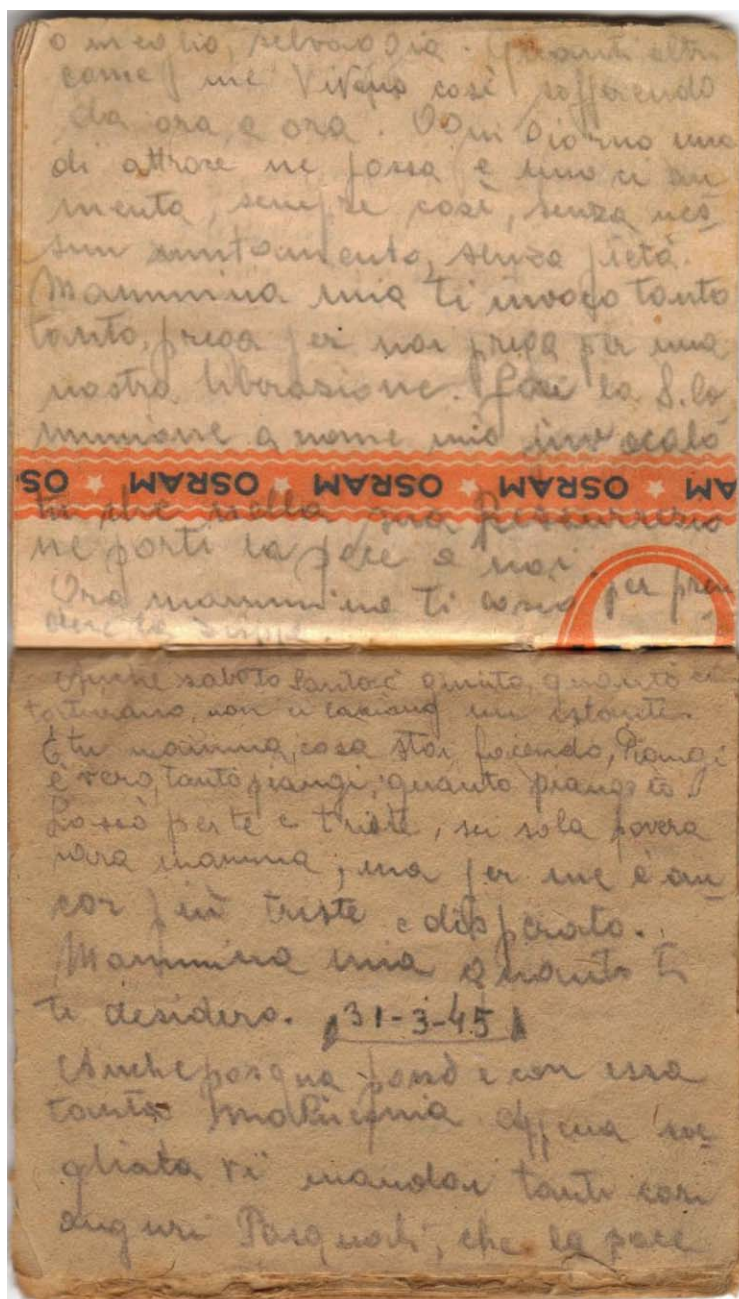 o meglio, selvaggia. Quanti altri
come me vivono così soffrendo
da ora a ora. Ogni giorno una
di attroce ne passa e uno ci au
menta, sempre così, senza nes
sun mutamento, senza pietà.
Mammina mia ti invoco tanto
tanto, prega per noi prega per una
nostra liberazione. Fai la S. Co
munione a nome mio invocalo
OSRAM OSRAM OSRAM
tu che nella sua Resurrezio
ne porti la pace a noi.
Ora mammina ti lascio per pren
dere la zuppa.
Anche sabato Santo è giunto, quanto ci
torturano, non ci lasciano un istante.
E tu mamma, cosa stai facendo, Piangi
è vero, tanto piangi, quanto piango io.
Lo so per te è triste, sei sola povera
cara mamma, ma per me è an
cor più triste e disperato.
Mammina mia quanto ti
ti desidero. 31-3-45
Anche pasqua passò e con essa
tanta malinconia. Appena sve
gliata vi mandai tanti cari
auguri Pasquali, che la pace